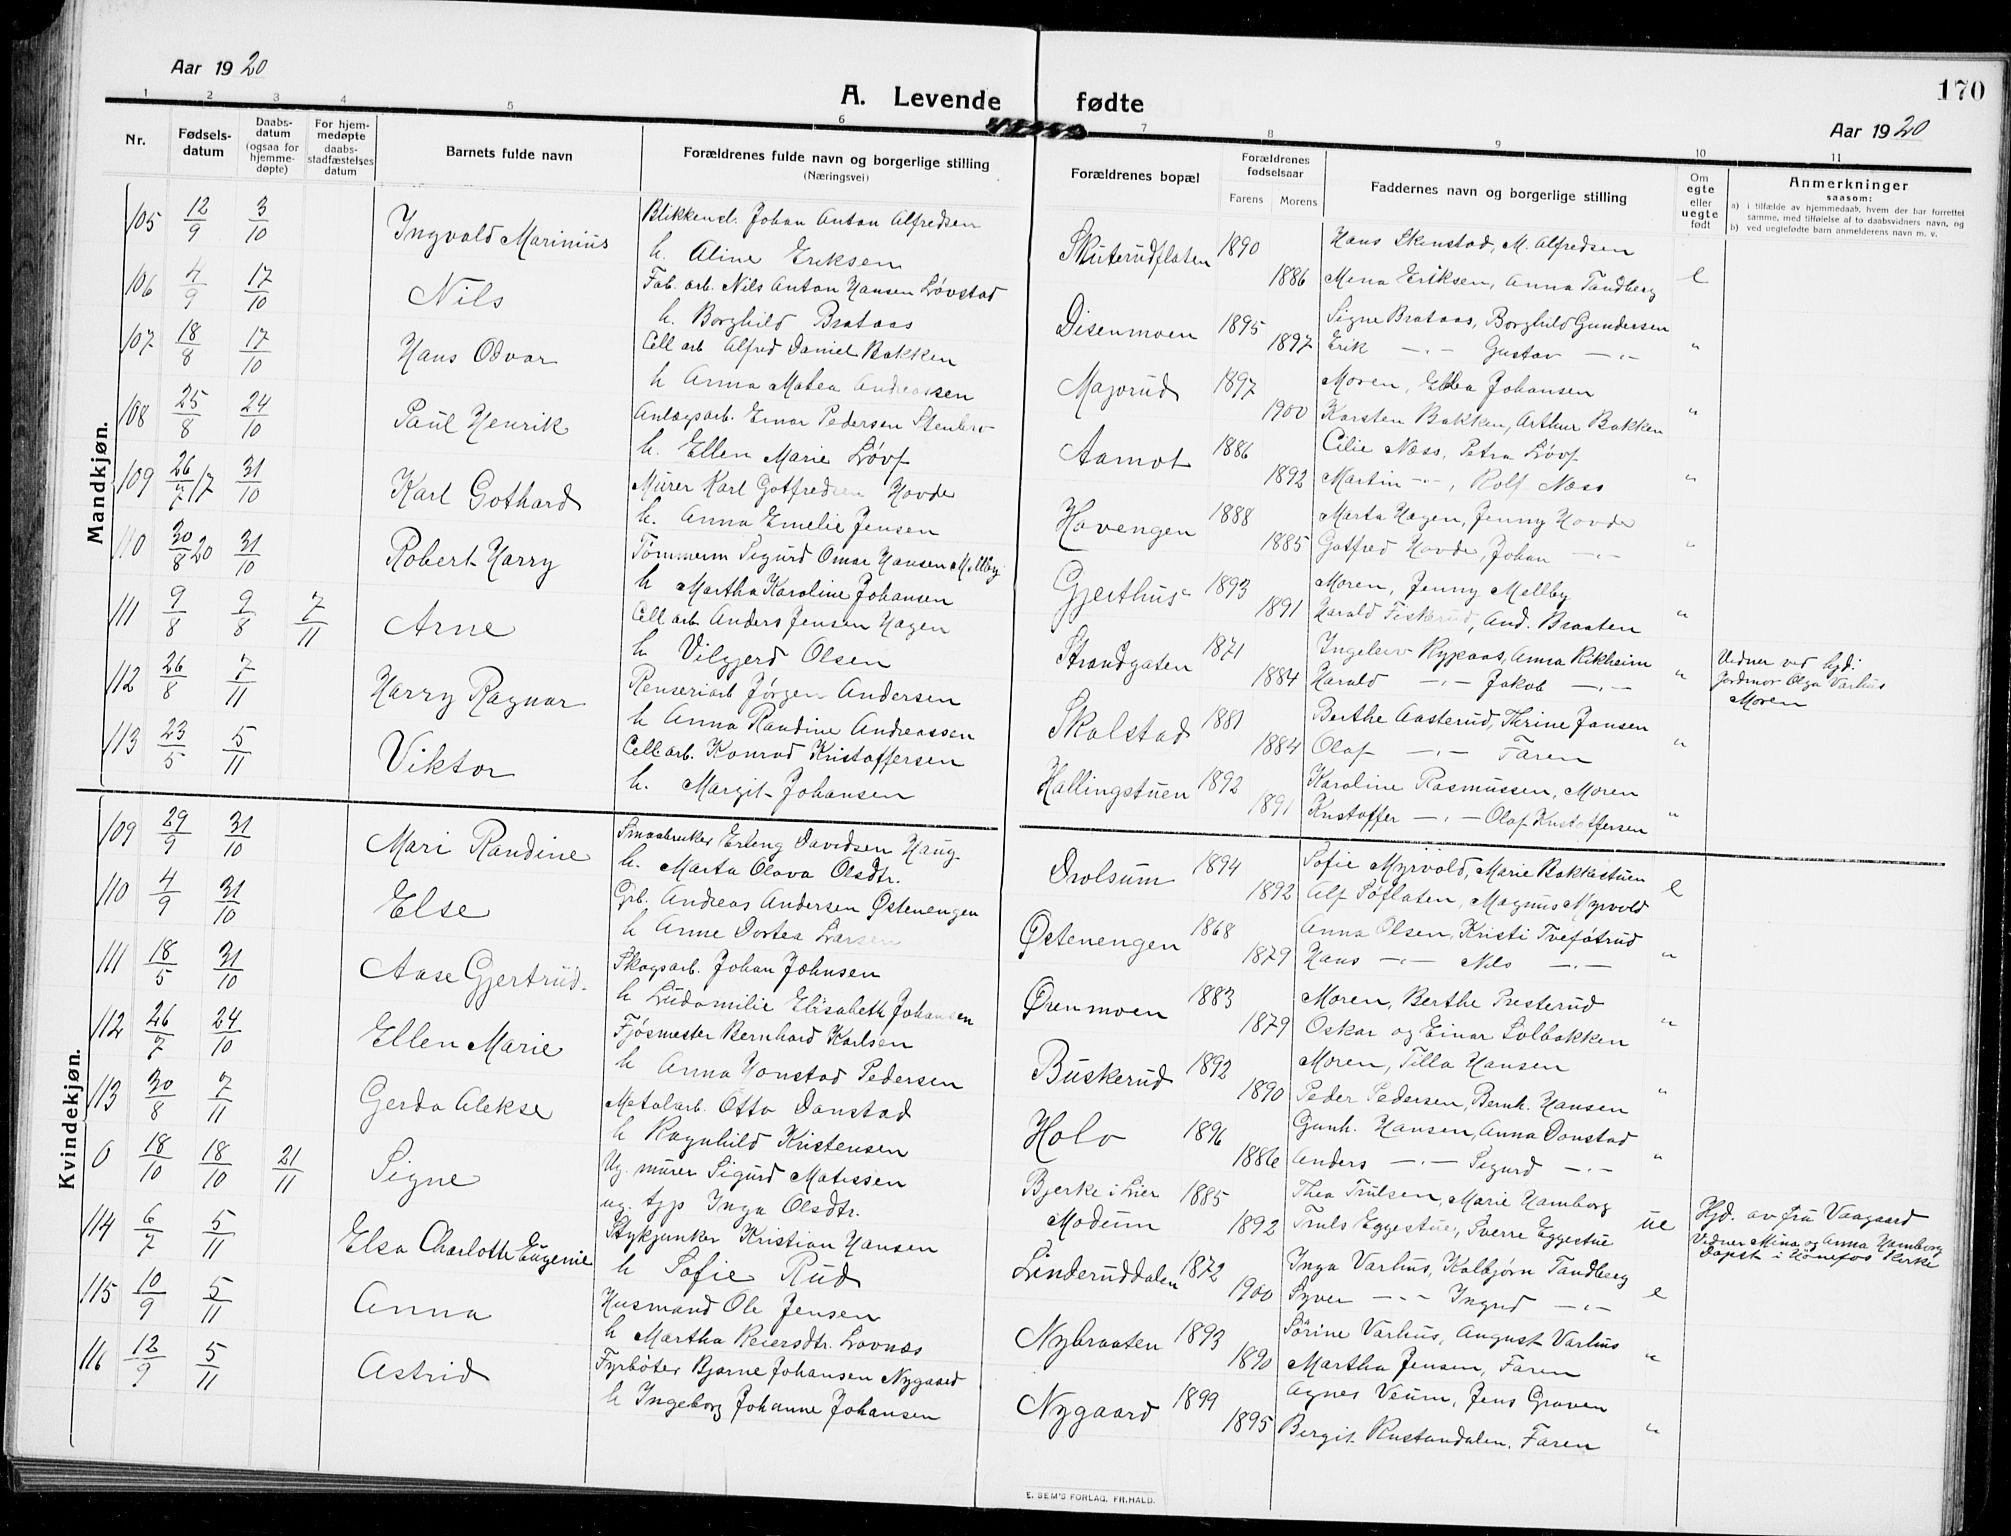 Aar 1920
A. Levende fødte
170
Aar 1920
1 2 3 4 5 6 7 8 9 10 11
Nr.
Fødsels-
datum
Daabs-
datum
(ogsaa for
hjemme-
døpte)
For hjem-
medøpte
daabs-
stadfæstelses
datum
Barnets fulde navn
Forældrenes fulde navn og borgerlige stilling
(Næringsvei)
Forældrenes bopæl
Forældrenes
fødselsaar
Farens Morens
Faddernes navn og borgerlige stilling
Om
egte
eller
uegte
født
Anmerkninger
saasom:
a) i tilfælde av hjemmedaab, hvem der har forrettet
samme, med tilføielse af to daabsvidners navn, og
b) ved uegtefødte barn anmelderens navn m. v.
Mandkjøn.
105 12/9 3/10 Ingvald Marinius Blikkensl. Johan Anton Alfredsen Skuterudflaten 1890 Hans Skenstad, M. Alfredsen
h. Aline Eriksen 1886 Mena Eriksen, Anna Tandberg e
106 4/9 17/10 Nils Fab. arb. Nils Anton Hansen Løvstad Disenmoen 1895 Signe Brataas, Borghild Gundersen
h. Borghild Brataas 1897 Erik -"- Gustav -"- "
107 18/8 17/10 Hans Odvar Cell arb Alfred Daniel Bakken Majorud 1897 Moren, Ella Johansen
h Anna Matea Andreassen 1900 Karsten Bakken, Arthur Bakken "
108 25/8 24/10 Paul Henrik Anlægsarb. Einar Pedersen Stenbro Aamot 1886 Cilie Næss, Petra Løvf
h. Ellen Marie Løvf 1892 Martin -"-, Rolf Næss "
109 26/7 17 31/10 Karl Gothard Murer Karl Gotfredsen Hovde Hovengen 1888 Marta Hagen, Jenny Hovde
h. Anna Emelie Jensen 1885 Gotfred Hovde, Johan -"- "
110 30/8 20 31/10 Robert Harry Tømmerm Sigurd Omar Hansen Mellby Gjerthus 1893 Moren, Jenny Mellby
h Martha Karoline Johansen 1891 Harald Fiskerud, And. Braaten "
111 9/8 9/8 7/11 Arne Cell arb Anders Jensen Hagen Strandgaten 1871 Ingeleiv Rypaas, Anna Rikheim
h Vilgjerd Olsen 1884 Harald -"- Jakob -"- "
Vidner ved hjd:
Jordmor Olga Varhus
Moren
112 26/8 7/11 Harry Ragnar Renseriarb Jørgen Andersen Skalstad 1881 Berthe Aasterud, Thrine Jansen
h Anna Randine Andreassen 1884 Olaf -"- Faren "
113 23/5 5/11 Viktor Cell. arb. Konrad Kristoffersen Hallingstuen 1892 Karoline Rasmussen, Moren
h. Margit Johansen 1891 Kristoffer -"- Olaf Kristoffersen "
Kvindekjøn.
109 29/9 31/10 Mari Randine Smaabruker Erling Davidsen Haug Drolsum 1894 Sofie Myrvold, Marie Bakkestuen
h. Marta Olava Olsdtr. 1892 Alf Søflaten, Magnus Myrvold e
110 4/9 31/10 Else Grb. Andreas Andersen Østenengen Østenengen 1868 Anna Olsen, Kristi Tveføtrud
h Anne Dortea Larsen 1879 Hans -"- Nils -"- "
111 18/5 31/10 Aase Gjertrud. Skogsarb. Johan Johnsen Ørenmoen 1883 Moren, Berthe Presterud
h Ludomilie Elisabeth Johansen 1879 Oskar og Einar Solbakken "
112 26/7 24/10 Ellen Marie Fjøsmester Bernhard Karlsen Buskerud 1892 Moren, Tilla Hansen
h Anna Honstad Pedersen 1890 Peder Pedersen, Bernh. Hansen "
113 30/8 7/11 Gerda Alekse Metalarb. Otto Danstad Holo 1896 Gunh. Hansen, Anna Donstad
h Ragnhild Kristensen 1886 Anders -"- Sigurd -"- "
0 18/10 18/10 21/11 Signe Ug. murer Sigurd Matissen Bjerke i Lier 1885 Thea Trulsen, Marie Hamborg
ug. tjp Inga Olsdtr. Modum 1892 Truls Eggestue, Sverre Eggestue ue
Hjd. av fru Vaagaard
Vidner Mina og Anna Hamborg
Døpt i Hønefos Kirke
114 6/7 5/11 Elsa Charlotte Eugenie Stykjunker Kristian Hansen Linderuddalen 1872 Inga Varhus, Kolbjørn Tandberg
h Sofie Rud 1900 Syver -"- Ingrid -"- e
115 10/9 5/11 Anna Husmand Ole Jensen Nybraaten 1893 Sørine Varhus, August Varhus
h Martha Reiersdtr. Lovnæs 1890 Martha Jensen, Faren "
116 12/9 5/11 Astrid Fyrbøter Bjarne Johansen Nygaard Nygaard 1899 Agnes Veum, Jens Graven
h Ingeborg Johanne Johansen 1895 Bergit Rustandalen, Faren "
E. SEM'S FORLAG, FR.HALD.